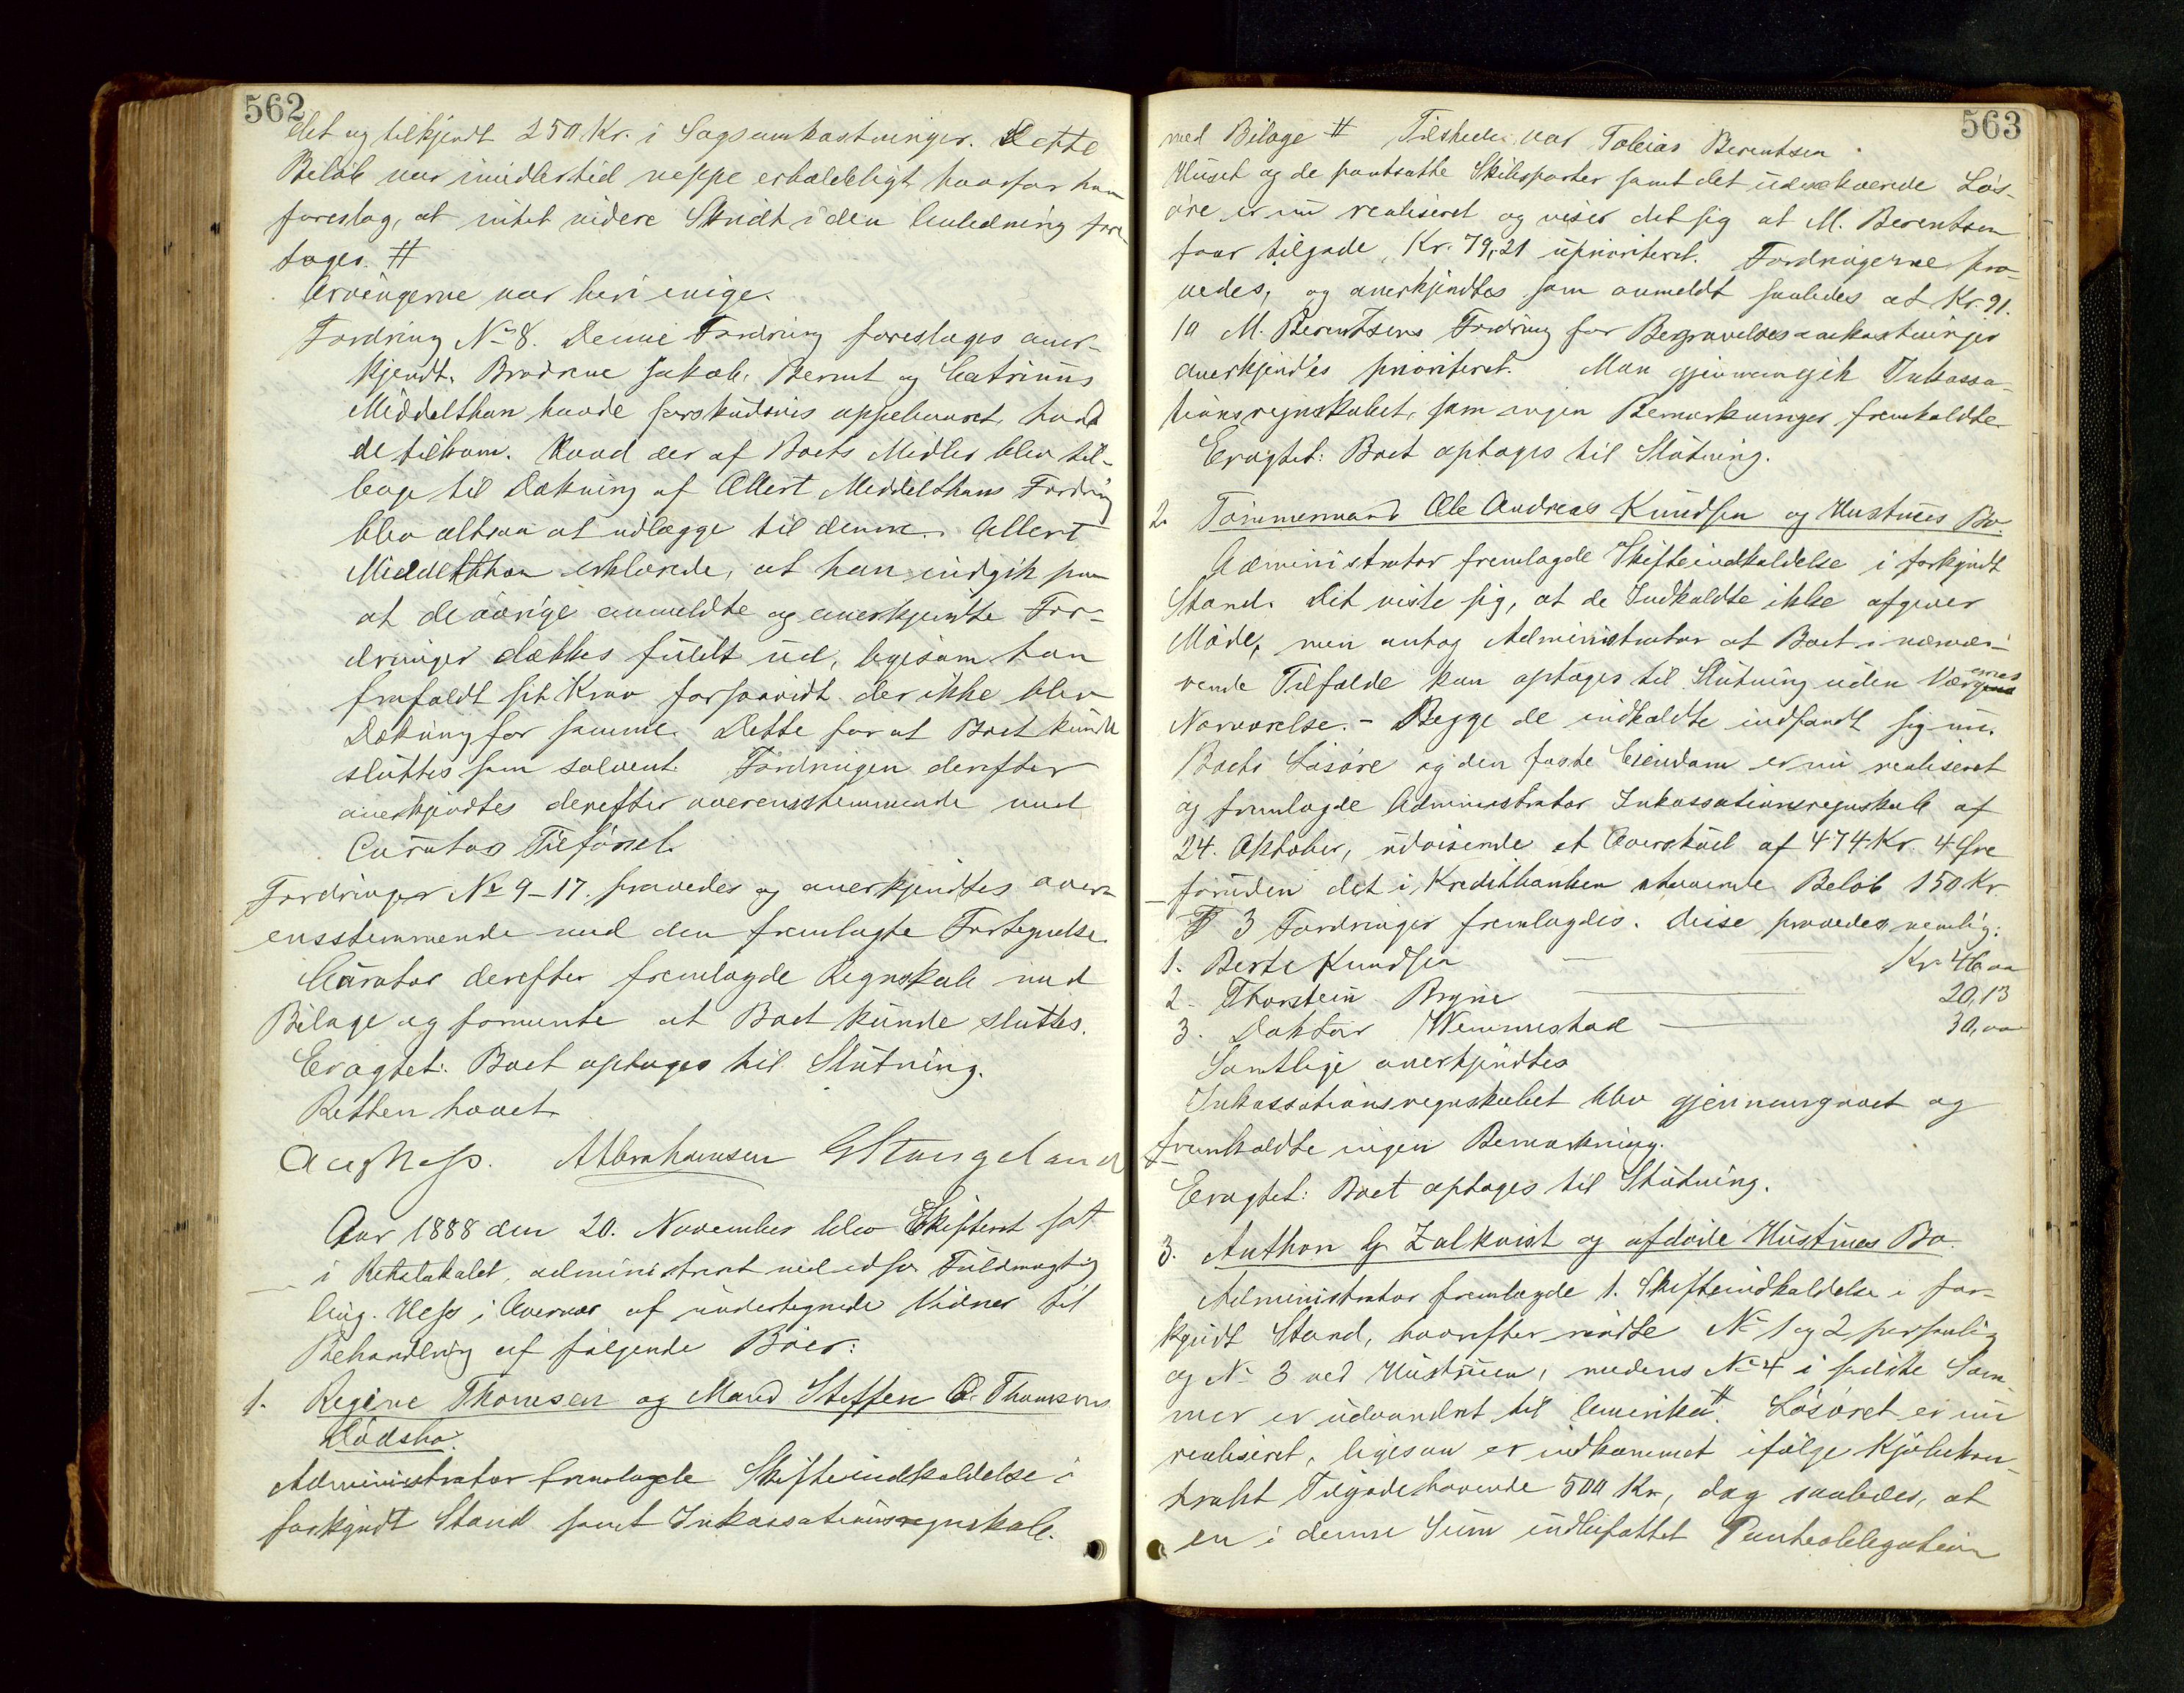 562
det og tilkjendt 250 Kr. i Sagsomkostninger. Dette
Beløb var imidlertid neppe erholdeligt hvorfor han
foreslog, at intet videre Skridt i den Anledning fore-
tages. #
Arvingerne var heri enige.
Fordring No 8. Denne Fordring foresloges aner-
kjendt. Brødrene Jakob, Bernt og Catrinus
Middelthon havde forskudsvis oppebaaret, hvad
de tilkom. Hvad der af Boets Midler blev til-
bage til Dækning af Ællert Middelthons Fordring
blev altsaa at udlægge til denne. Allert
Middelthon erklærede, at han indgik paa
at de øvrige anmeldte og anerkjendte For-
dringer dækkes fuldt ud, ligesom han
frafaldt sit Krav forsaavidt der ikke blev
Dækning for samme. Dette for at Boet kunde
sluttes som solvent. Fordringen derefter
anerkjendtes derefter overensstemmende med
Curators Tilførsel.
Fordringer No 9-17. prøvedes og anerkjendtes over-
ensstemmende med den fremlagte Fortegnelse.
Curator derefter fremlagde Regnskab med
Bilage og formente at Boet kunde sluttes.
Eragtet: Boet optages til Slutning.
Retten hævet.
Aug Hess. Abrahamsen G Stangeland
Aar 1888 den 20. November blev Skifteret sat
i Retslokalet, administreret ved edsv. Fuldmægtig
Aug. Hess i Overvær af undertegnede Vidner til
Behandling af følgende Boer:
1. Regine Thomsen og Mand Steffen O. Thomsens
Dødsbo.
Administrator fremlagde Skifteindkaldelse i
forkyndt Stand samt Inkassationsregnskab.
563
med Bilage # Tilstede var Tobias Berentsen
Huset og de pantsatte Skibsparter samt det udækværende Løs-
øre er nu realiseret og viser det sig at M. Berentsen
faar tilgode Kr. 79,21 uprioriteret. Fordringerne prø-
vedes, og anerkjendtes som anmeldt saaledes at Kr. 91.
10 M. Berentsens Fordring for Begravelsesomkostninger
anerkjendes prioriteret. Man gjennemgik Inkassa-
tionsregnskabet, som ingen Bemærkninger fremkaldte
Eragtet: Boet optages til Slutning.
2. Tømmermand Ole Andreas Knudsen og Hustrues Bo.
Administrator fremlagde Skifteindkaldelse i forkyndt
Stand. Det viste sig, at de Indkaldte ikke afgiver
Møde, men antog Administrator at Boet i nærvæ-
rende Tilfælde kan optages til Slutning uden Værgernes
Nærværelse. - Begge de indkaldte indfandt sig nu.
Boets Løsøre og den faste Eiendom er nu realiseret
og fremlagde Administrator Inkassationsregnskab af
24. Oktober, udvisende et Overskud af 474 Kr. 4 Øre
foruden det i Kreditbanken staaende Beløb 150 Kr.
3 Fordringer fremlagdes. Disse prøvedes nemlig:
1. Berte Knudsen — — Kr 46 00
2. Thorstein Bryne — 20,13
3. Doktor Wennestad — 30,00
Samtlige anerkjendtes
Inkassationsregnskabet blev gjennemgaaet og
fremkaldte ingen Bemærkning.
Eragtet: Boet optages til Slutning.
3. Anthon G Zalkvist og afdøde Hustrues Bo.
Administrator fremlagde 1. Skifteindkaldelse i for-
kyndt Stand, hvorefter mødte No 1 og 2 personlig
og No 3 ved Hustruen, medens No 4 i sidste Som-
mer er udvandret til Amerika #. Løsøret er nu
realiseret, ligesom er indkommet ifølge Kjøbekon-
trakt Tilgodehavende 500 Kr, dog saaledes, at
en i denne Sum indbefattet Pantobligation